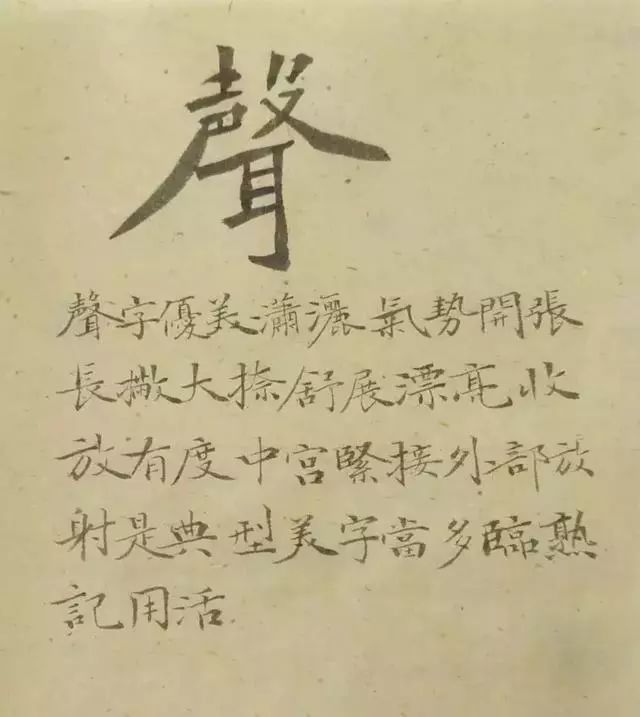 聲
聲字優美瀟灑氣勢開張
長撇大捺舒展漂亮收
放有度中宮緊接外部放
射是典型美字當多臨熟
記用活